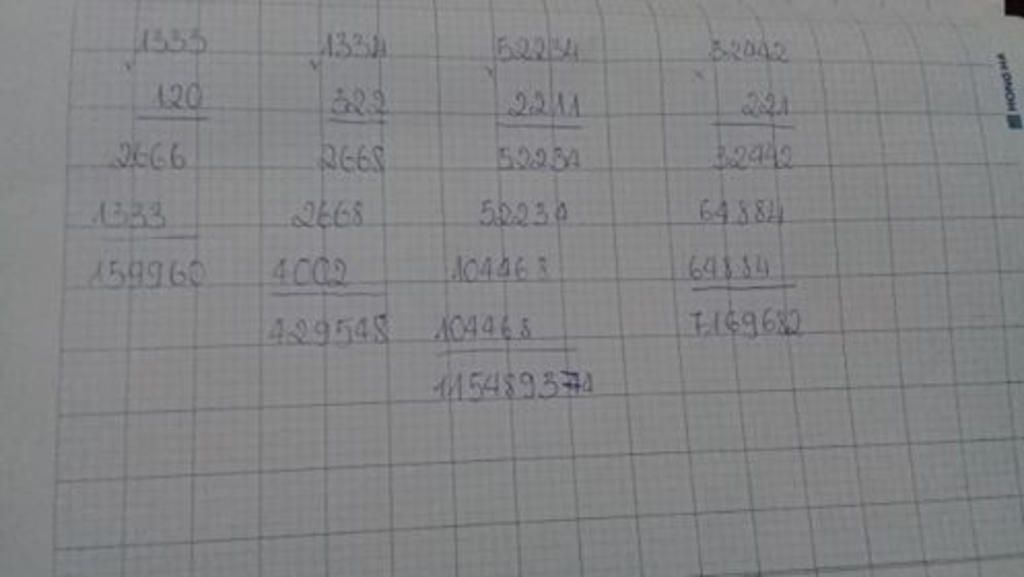 1333 1334 52234 32442
x x x x
120 322 2211 221
2666 2668 52234 32442
1333 2668 52234 64884
159960 4002 104468 64884
429548 104468 7169682
115489374